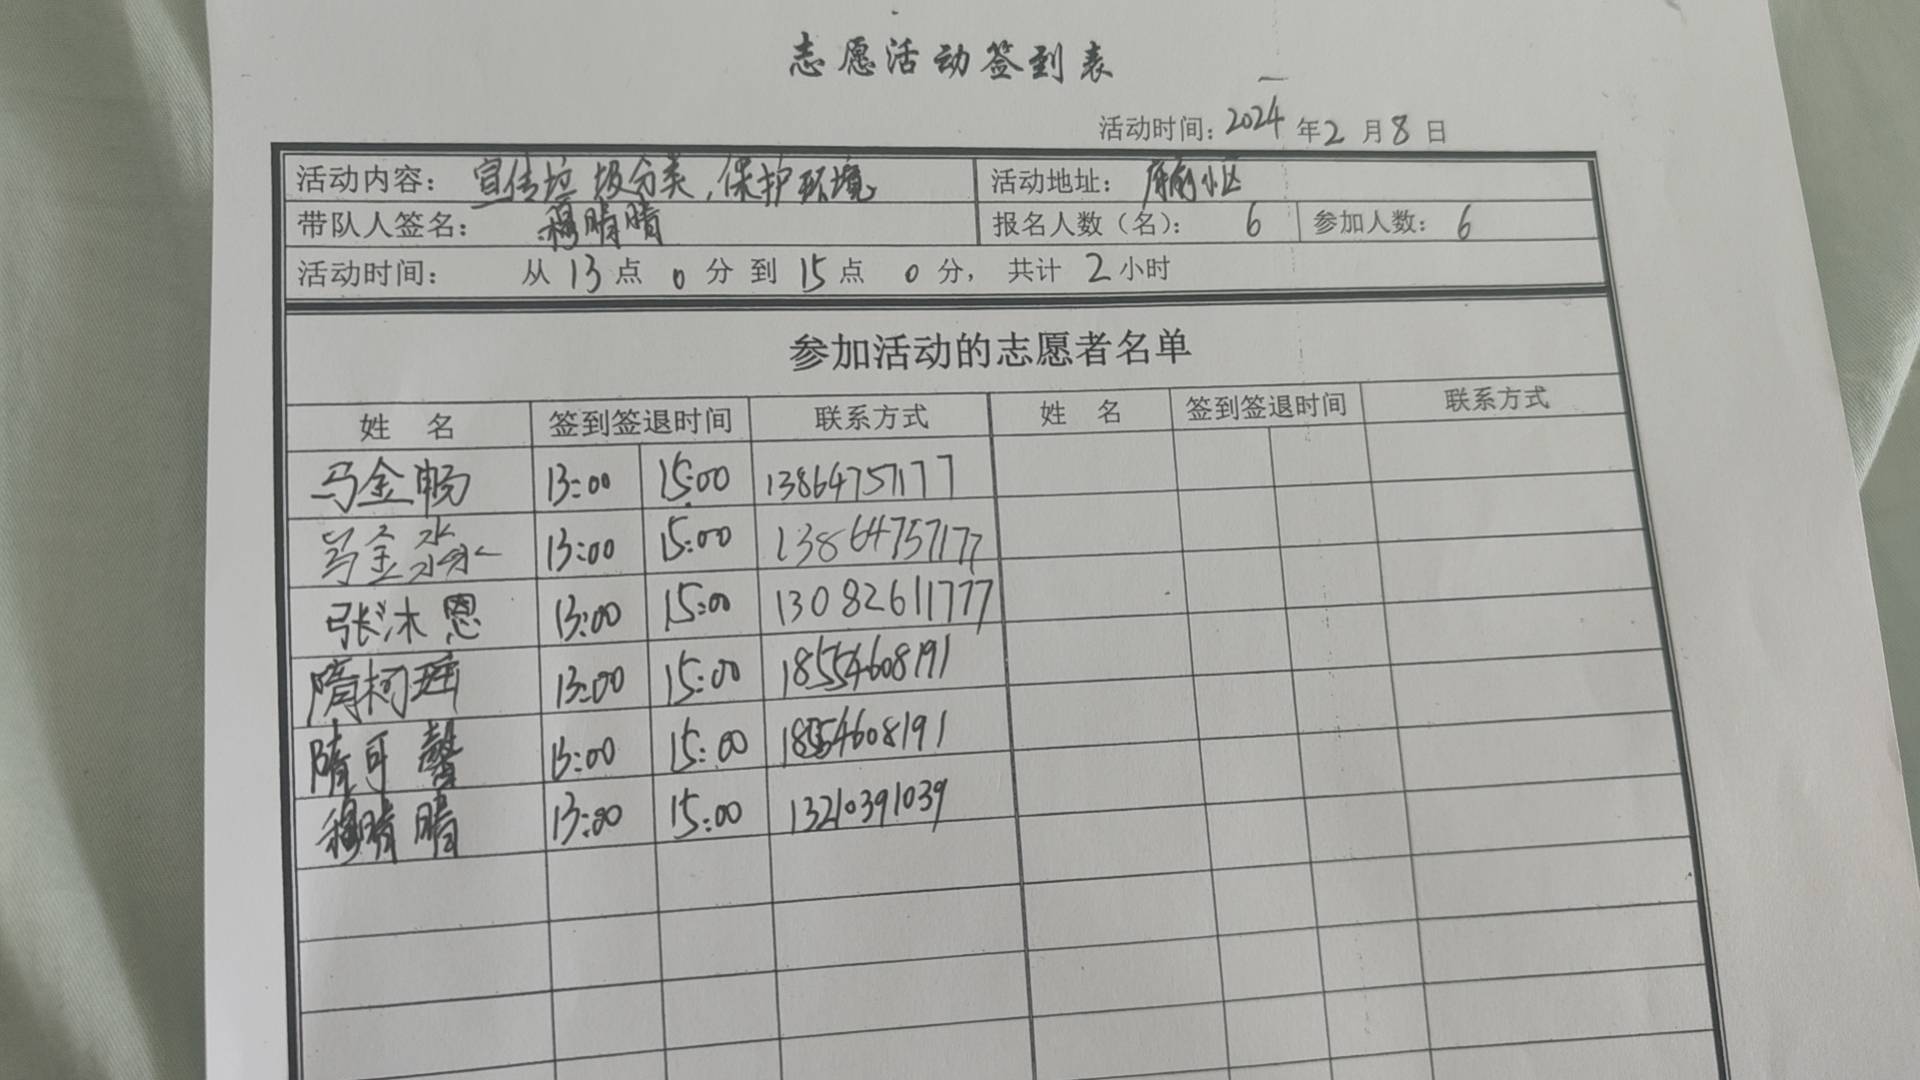 志愿活动签到表
活动时间：2024年2月8日
活动内容：宣传垃圾分类，保护环境 活动地址：小区
带队人签名：穆晴晴 报名人数（名）：6 参加人数：6
活动时间：从13点0分到15点0分，共计2小时
参加活动的志愿者名单
姓 名 签到签退时间 联系方式 姓 名 签到签退时间 联系方式
马金畅 13:00 15:00 13864757177
马金淼 13:00 15:00 13864757177
张沐恩 13:00 15:00 13082611777
隋柯 13:00 15:00 18554608191
隋可馨 13:00 15:00 18554608191
穆晴晴 13:00 15:00 13210391039